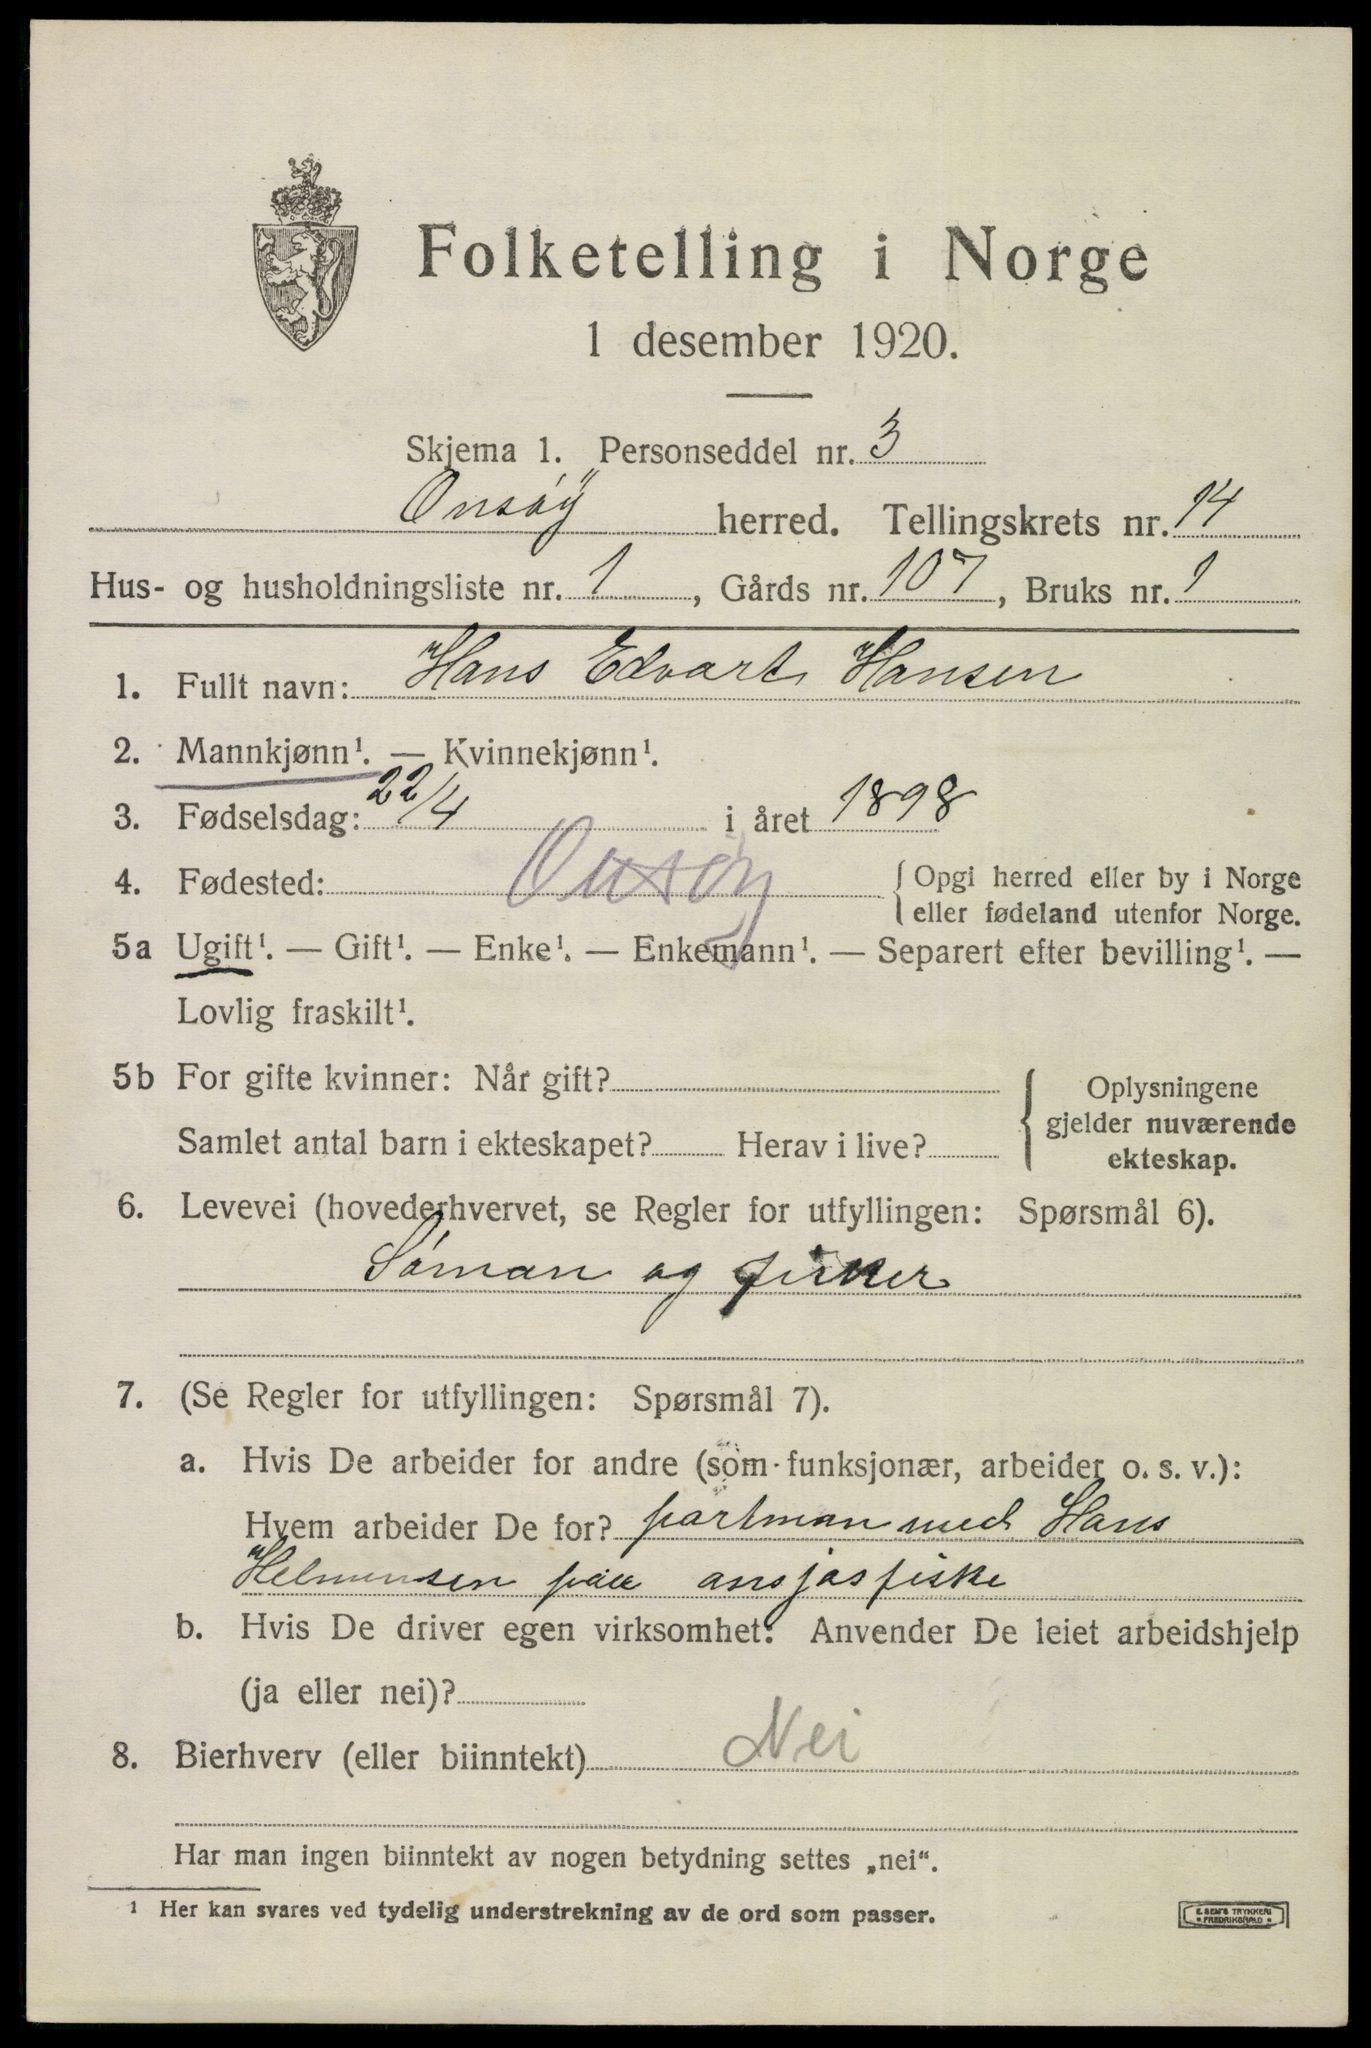 Folketelling i Norge
1 desember 1920.
Skjema 1. Personseddel nr. 3
Onsøy herred. Tellingskrets nr. 14
Hus- og husholdningsliste nr. 1, Gårds nr. 107, Bruks nr. 1
1. Fullt navn: Hans Edvart Hansen
2. Mannkjønn¹. — Kvinnekjønn¹.
3. Fødselsdag: 22/4 i året 1898
4. Fødested: Onsøy { Opgi herred eller by i Norge
eller fødeland utenfor Norge.
5a Ugift¹. — Gift¹. — Enke¹. — Enkemann¹. — Separert efter bevilling¹. —
Lovlig fraskilt¹.
5b For gifte kvinner: Når gift?
Samlet antal barn i ekteskapet? Herav i live?
Oplysningene
gjelder nuværende
ekteskap.
6. Levevei (hovederhvervet, se Regler for utfyllingen: Spørsmål 6).
Söman og fisker
7. (Se Regler for utfyllingen: Spørsmål 7).
a. Hvis De arbeider for andre (som funksjonær, arbeider o. s. v.):
Hvem arbeider De for? partman med Hans
paa ansjosfiske
b. Hvis De driver egen virksomhet: Anvender De leiet arbeidshjelp
(ja eller nei)?
8. Bierhverv (eller biinntekt) Nei
Har man ingen biinntekt av nogen betydning settes „nei“.
¹ Her kan svares ved tydelig understrekning av de ord som passer.
E. SEM'S TRYKKERI
FREDRIKSHALD